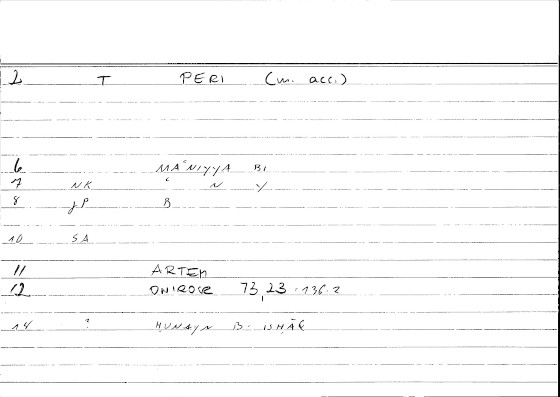 2 T PERI (w. acc.)
6 MAʿNIYYA BI
7 NK ʿ N Y
8 JP B
10 SA
11 ARTEM
12 ONIROCR 73,23 · 136.2
14 ? ḤUNAYN B. ISḤĀQ